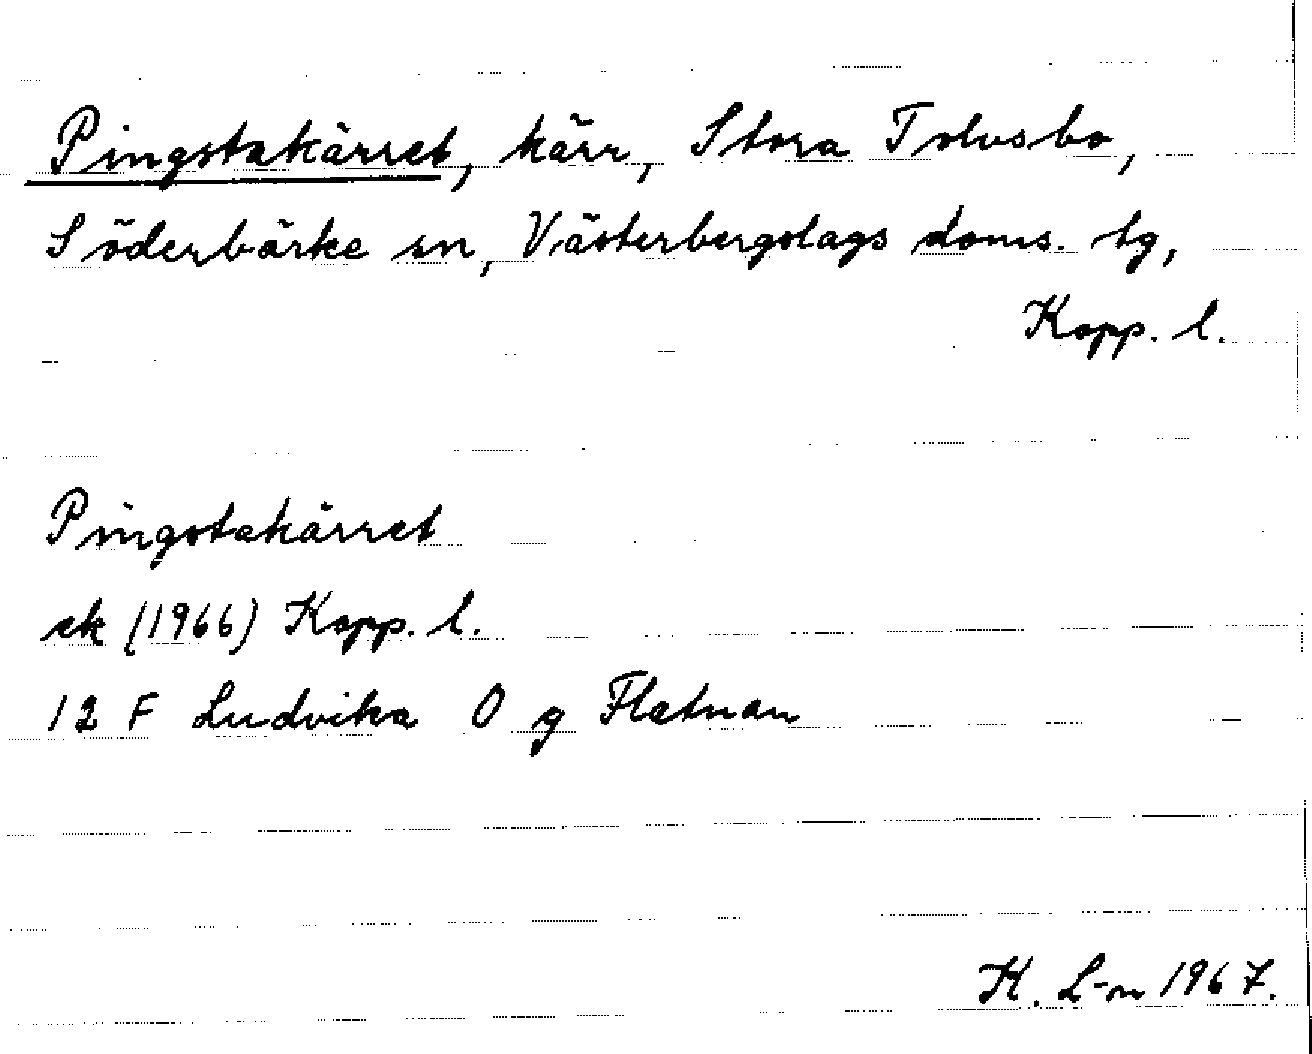 Pingstakärret, kärr, Stora Tolvsbo,
Söderbärke sn, Västerbergslags doms. tg,
Kopp. l.
Pingstakärret
ek (1966) Kopp. l.
12 F Ludvika O g Flatnan
K. L-m 1967.